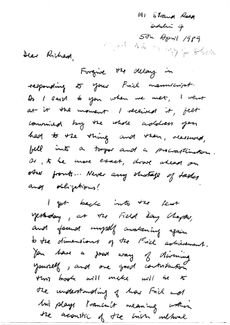 191 Strand Road
Dublin 4
5th April 1989
Dear Richard,
Forgive the delay in
responding to your Friel manuscript.
As I said to you when we met, I went
at it the moment I received it, felt
convinced by the whole address you
had to the thing and then, reassured,
fell into a torpor and a procrastination.
Or, to be more exact, drove ahead on
other fronts... Never any shortage of tasks
and obligations!
I got back into the text
yesterday, at the Field Day Chapter,
and found myself awakening again
to the dimensions of the Friel achievement.
You have a good way of
yourself, and one good contribution
this book will make will be to
the understanding of how Friel and
his plays transmit meaning within
the acoustic of the Irish cultural